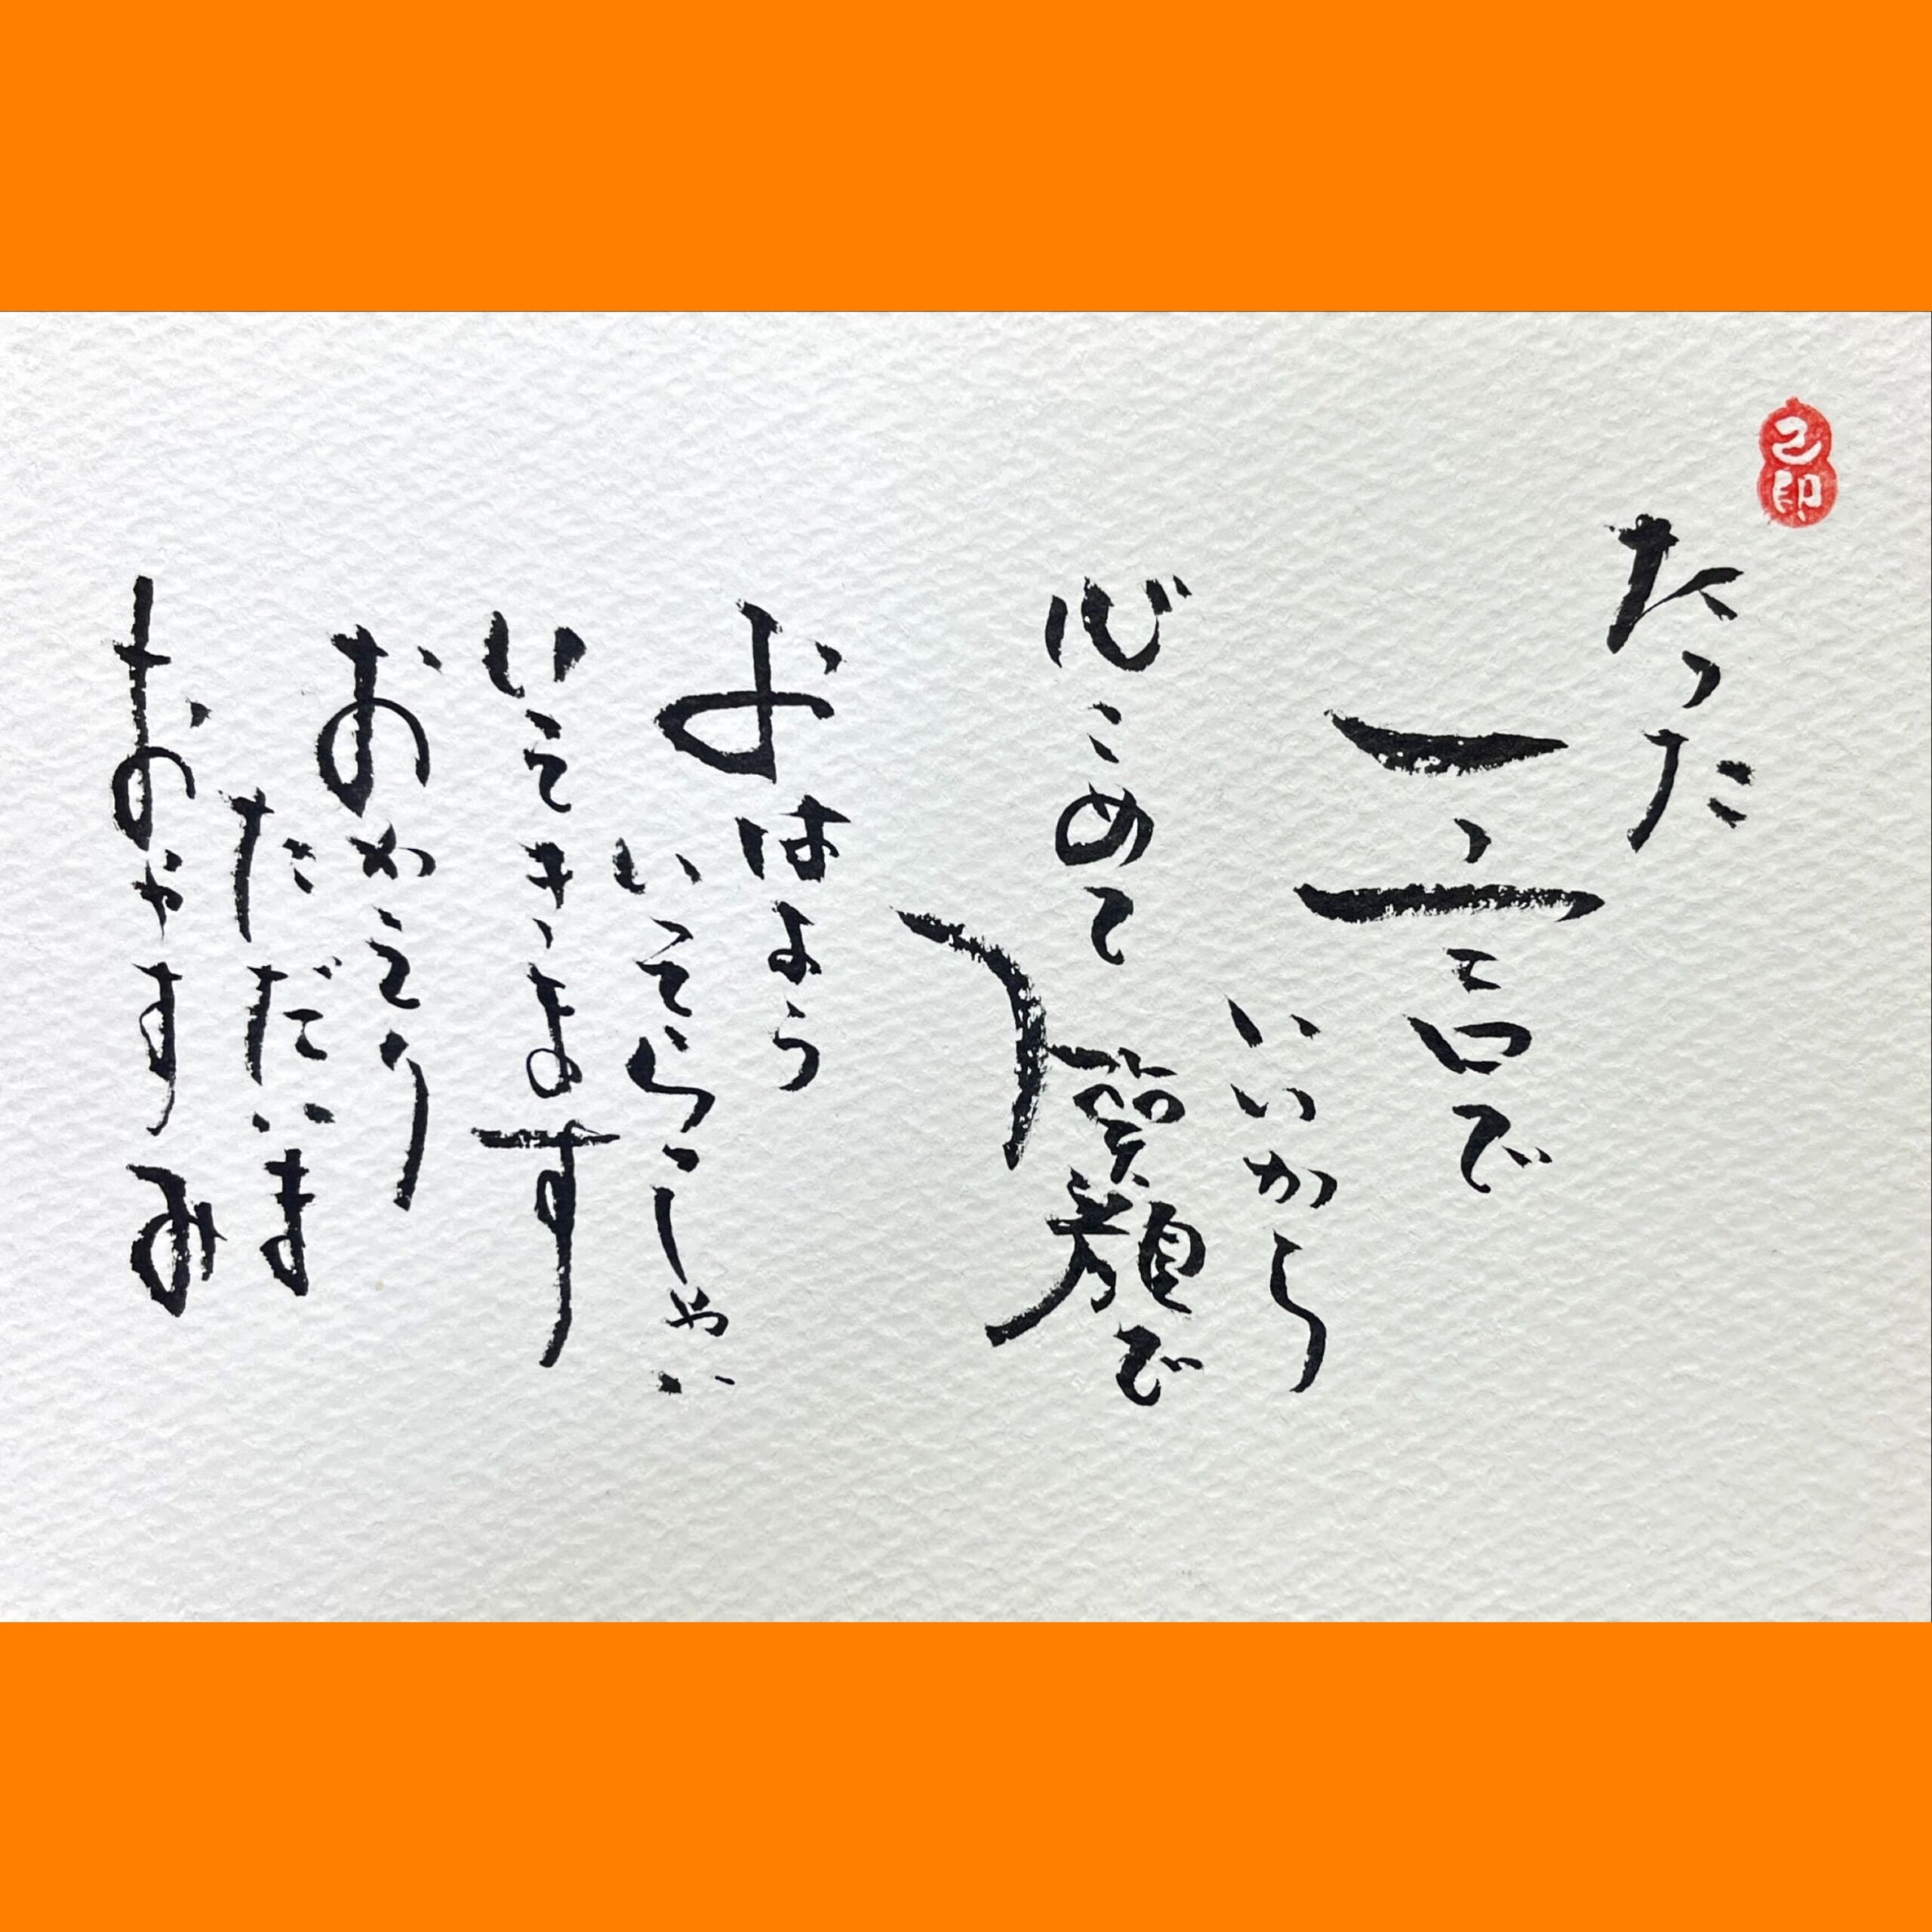 己印
たった
一言で
いいから
心こめて
笑顔で
おはよう
いってらっしゃい
いってきます
おかえり
ただいま
おやすみ